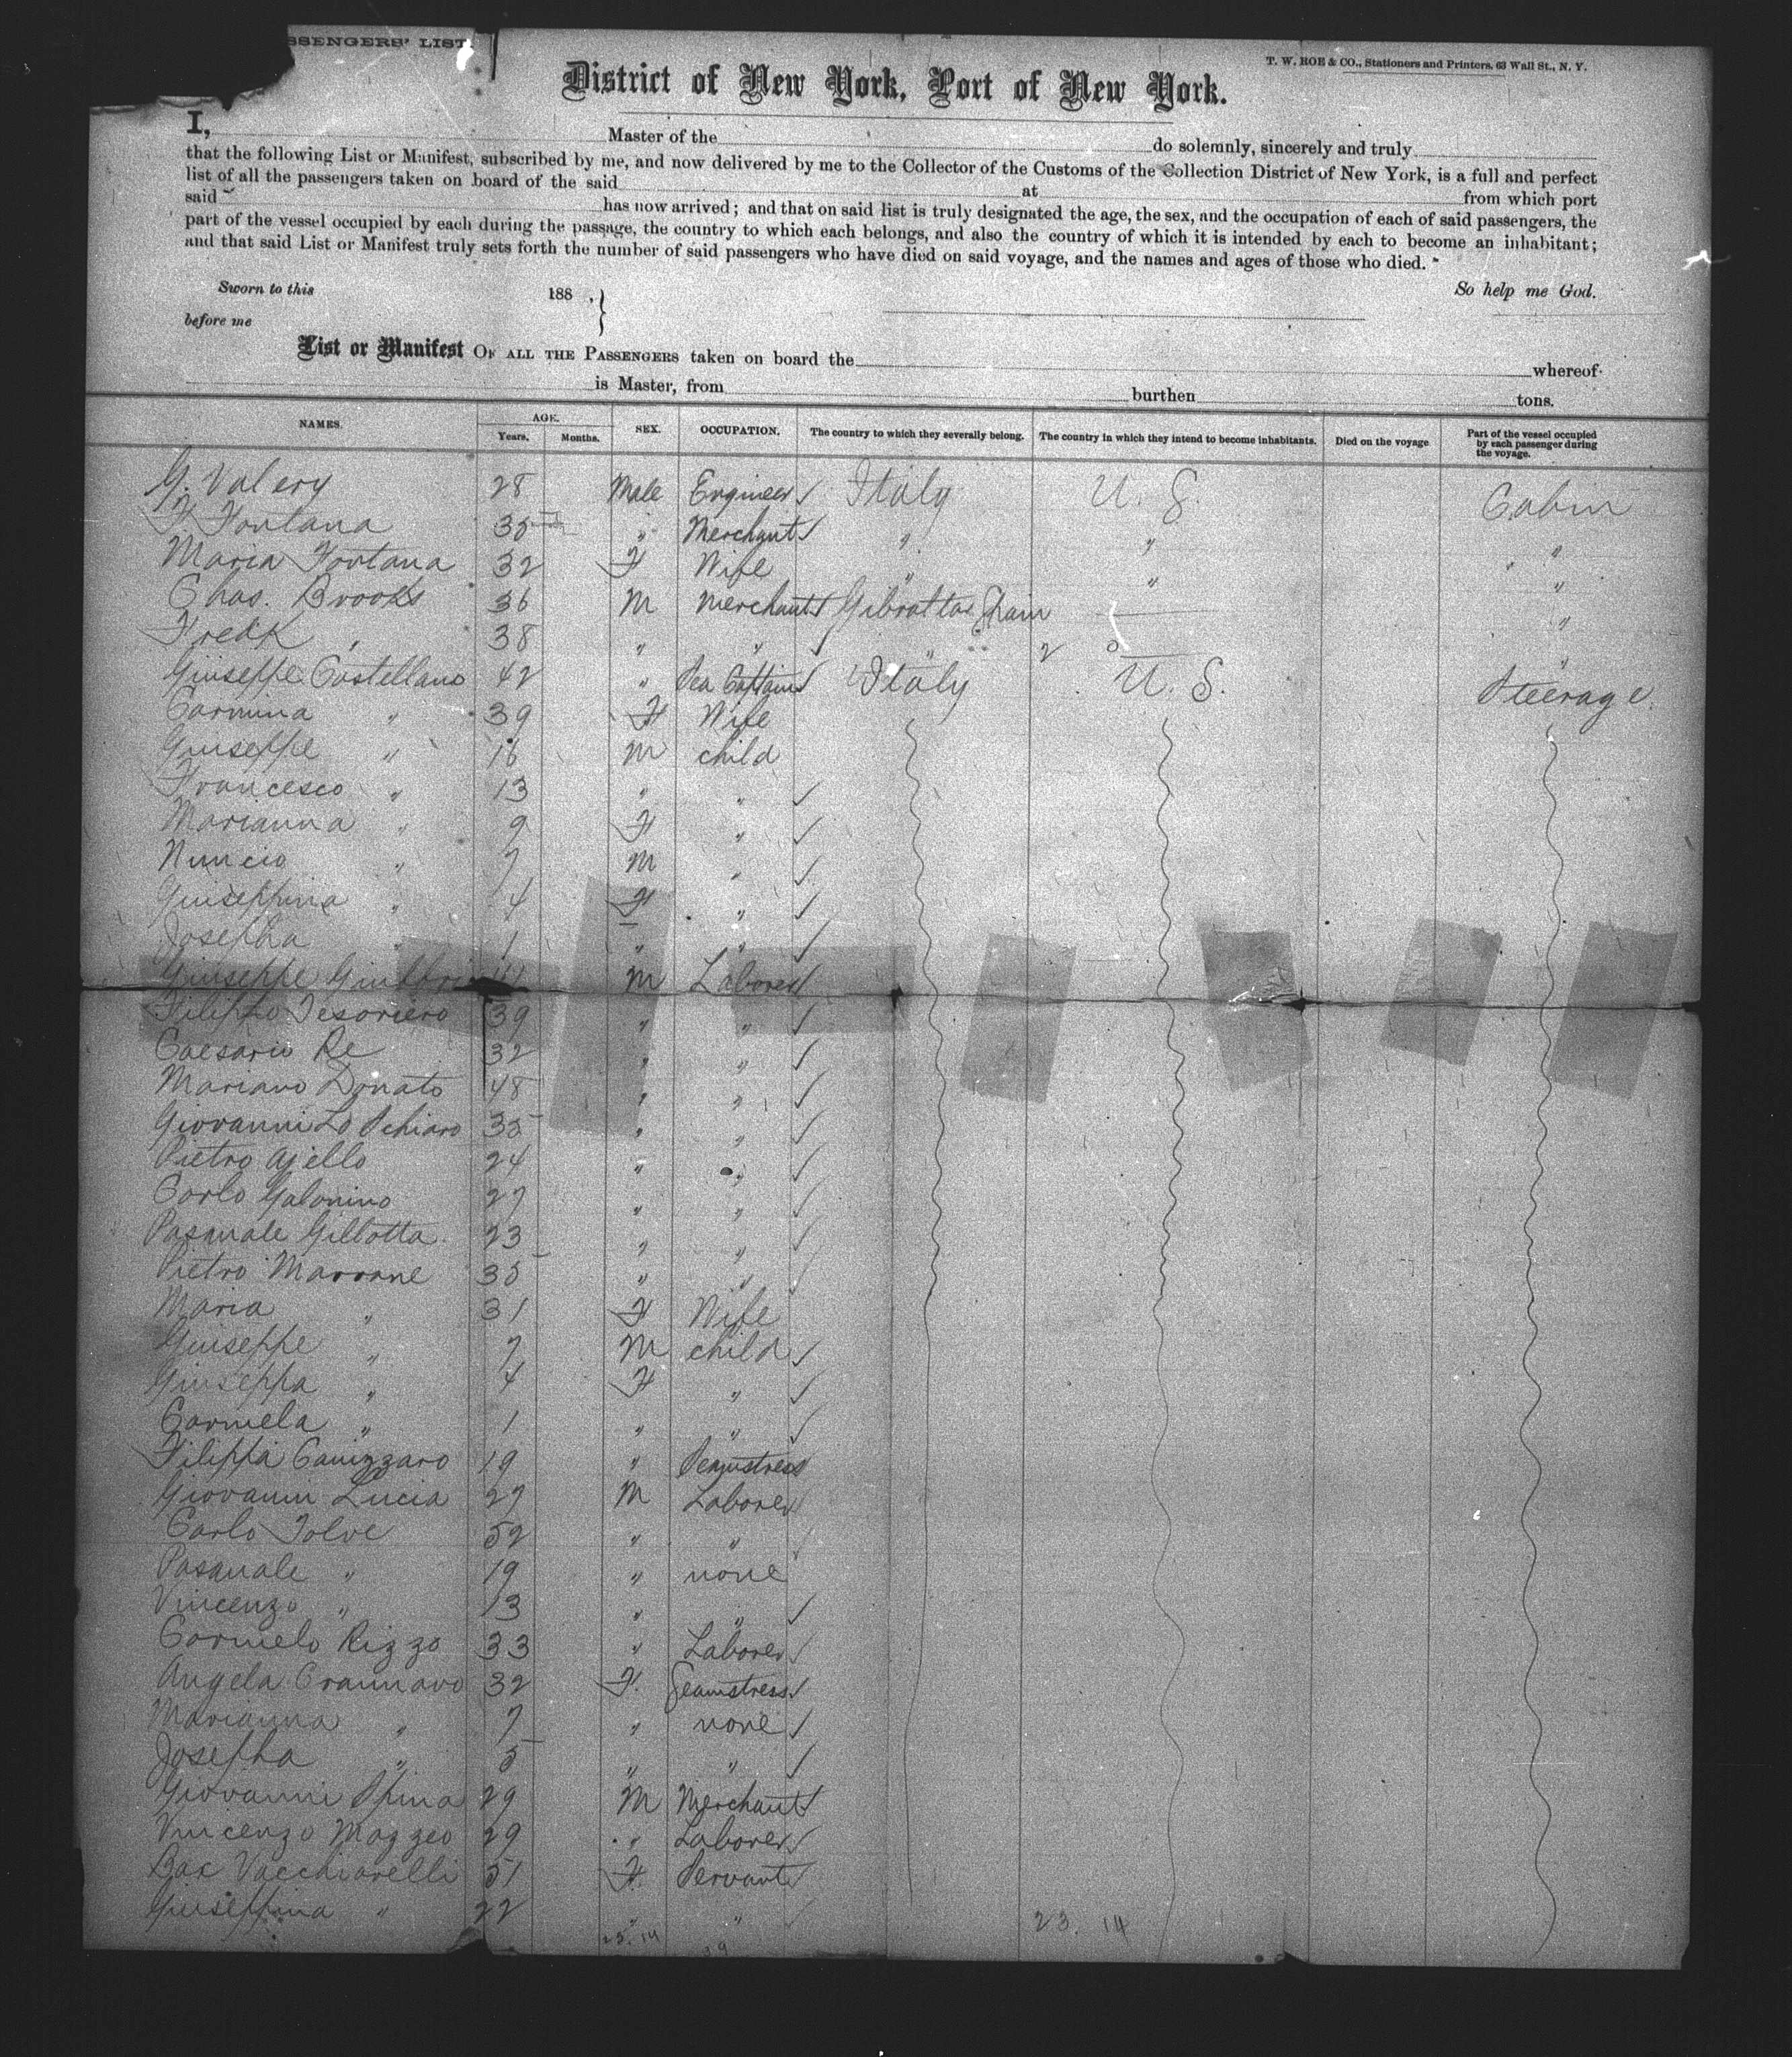 SSENGERS' LIST.
T. W. ROE & CO., Stationers and Printers, 63 Wall St., N. Y.
District of New York, Port of New York.
I, Master of the do solemnly, sincerely and truly
that the following List or Manifest, subscribed by me, and now delivered by me to the Collector of the Customs of the Collection District of New York, is a full and perfect
list of all the passengers taken on board of the said at from which port
said has now arrived; and that on said list is truly designated the age, the sex, and the occupation of each of said passengers, the
part of the vessel occupied by each during the passage, the country to which each belongs, and also the country of which it is intended by each to become an inhabitant;
and that said List or Manifest truly sets forth the number of said passengers who have died on said voyage, and the names and ages of those who died.
Sworn to this 188 , So help me God.
before me
List or Manifest OF ALL THE PASSENGERS taken on board the whereof
is Master, from burthen tons.
NAMES. AGE. Years. Months. SEX. OCCUPATION. The country to which they severally belong. The country in which they intend to become inhabitants. Died on the voyage Part of the vessel occupied by each passenger during the voyage.
G. Valery 28 Male Engineer Italy U. S. Cabin
F Fontana 35 " Merchant " " "
Maria Fontana 32 F Wife " " "
Chas. Brooks 36 M Merchant Gibraltar Spain "
Fredk " 38 " " " "
Giuseppe Castellano 42 " Sea Captain Italy U. S. Steerage
Carmina " 39 F Wife
Giuseppe " 16 M child
Francesco " 13 " "
Marianna " 9 F "
Nuncio " 7 M "
Giuseppina " 4 F "
Josepha " 1 " "
Giuseppe 41 M Laborer
Filippo Tesoriero 39 " "
Caesario Re 32 " "
Mariano Donato 48 " "
Giovanni Lo Schiavo 35 " "
Pietro Ajello 24 " "
Carlo Galonino 27 " "
Pasquale Gillotta 23 " "
Pietro Marrone 35 " "
Maria " 31 F Wife
Giuseppe " 7 M child
Giuseppa " 4 F "
Carmela " 1 " "
Filippa Canizzaro 19 " Seamstress
Giovanni Lucia 27 M Laborer
Carlo Tolve 52 " "
Pasquale " 19 " none
Vincenzo " 13 " "
Carmelo Rizzo 33 " Laborer
Angela Crannavo 32 F. Seamstress
Marianna " 7 " none
Josepha " 5 " "
Giovanni Spina 29 M Merchant
Vincenzo Mazzeo 29 " Laborer
Vacchiarelli 51 F. Servant
Giuseppina " 22 " "
23. 14
23. 14
19